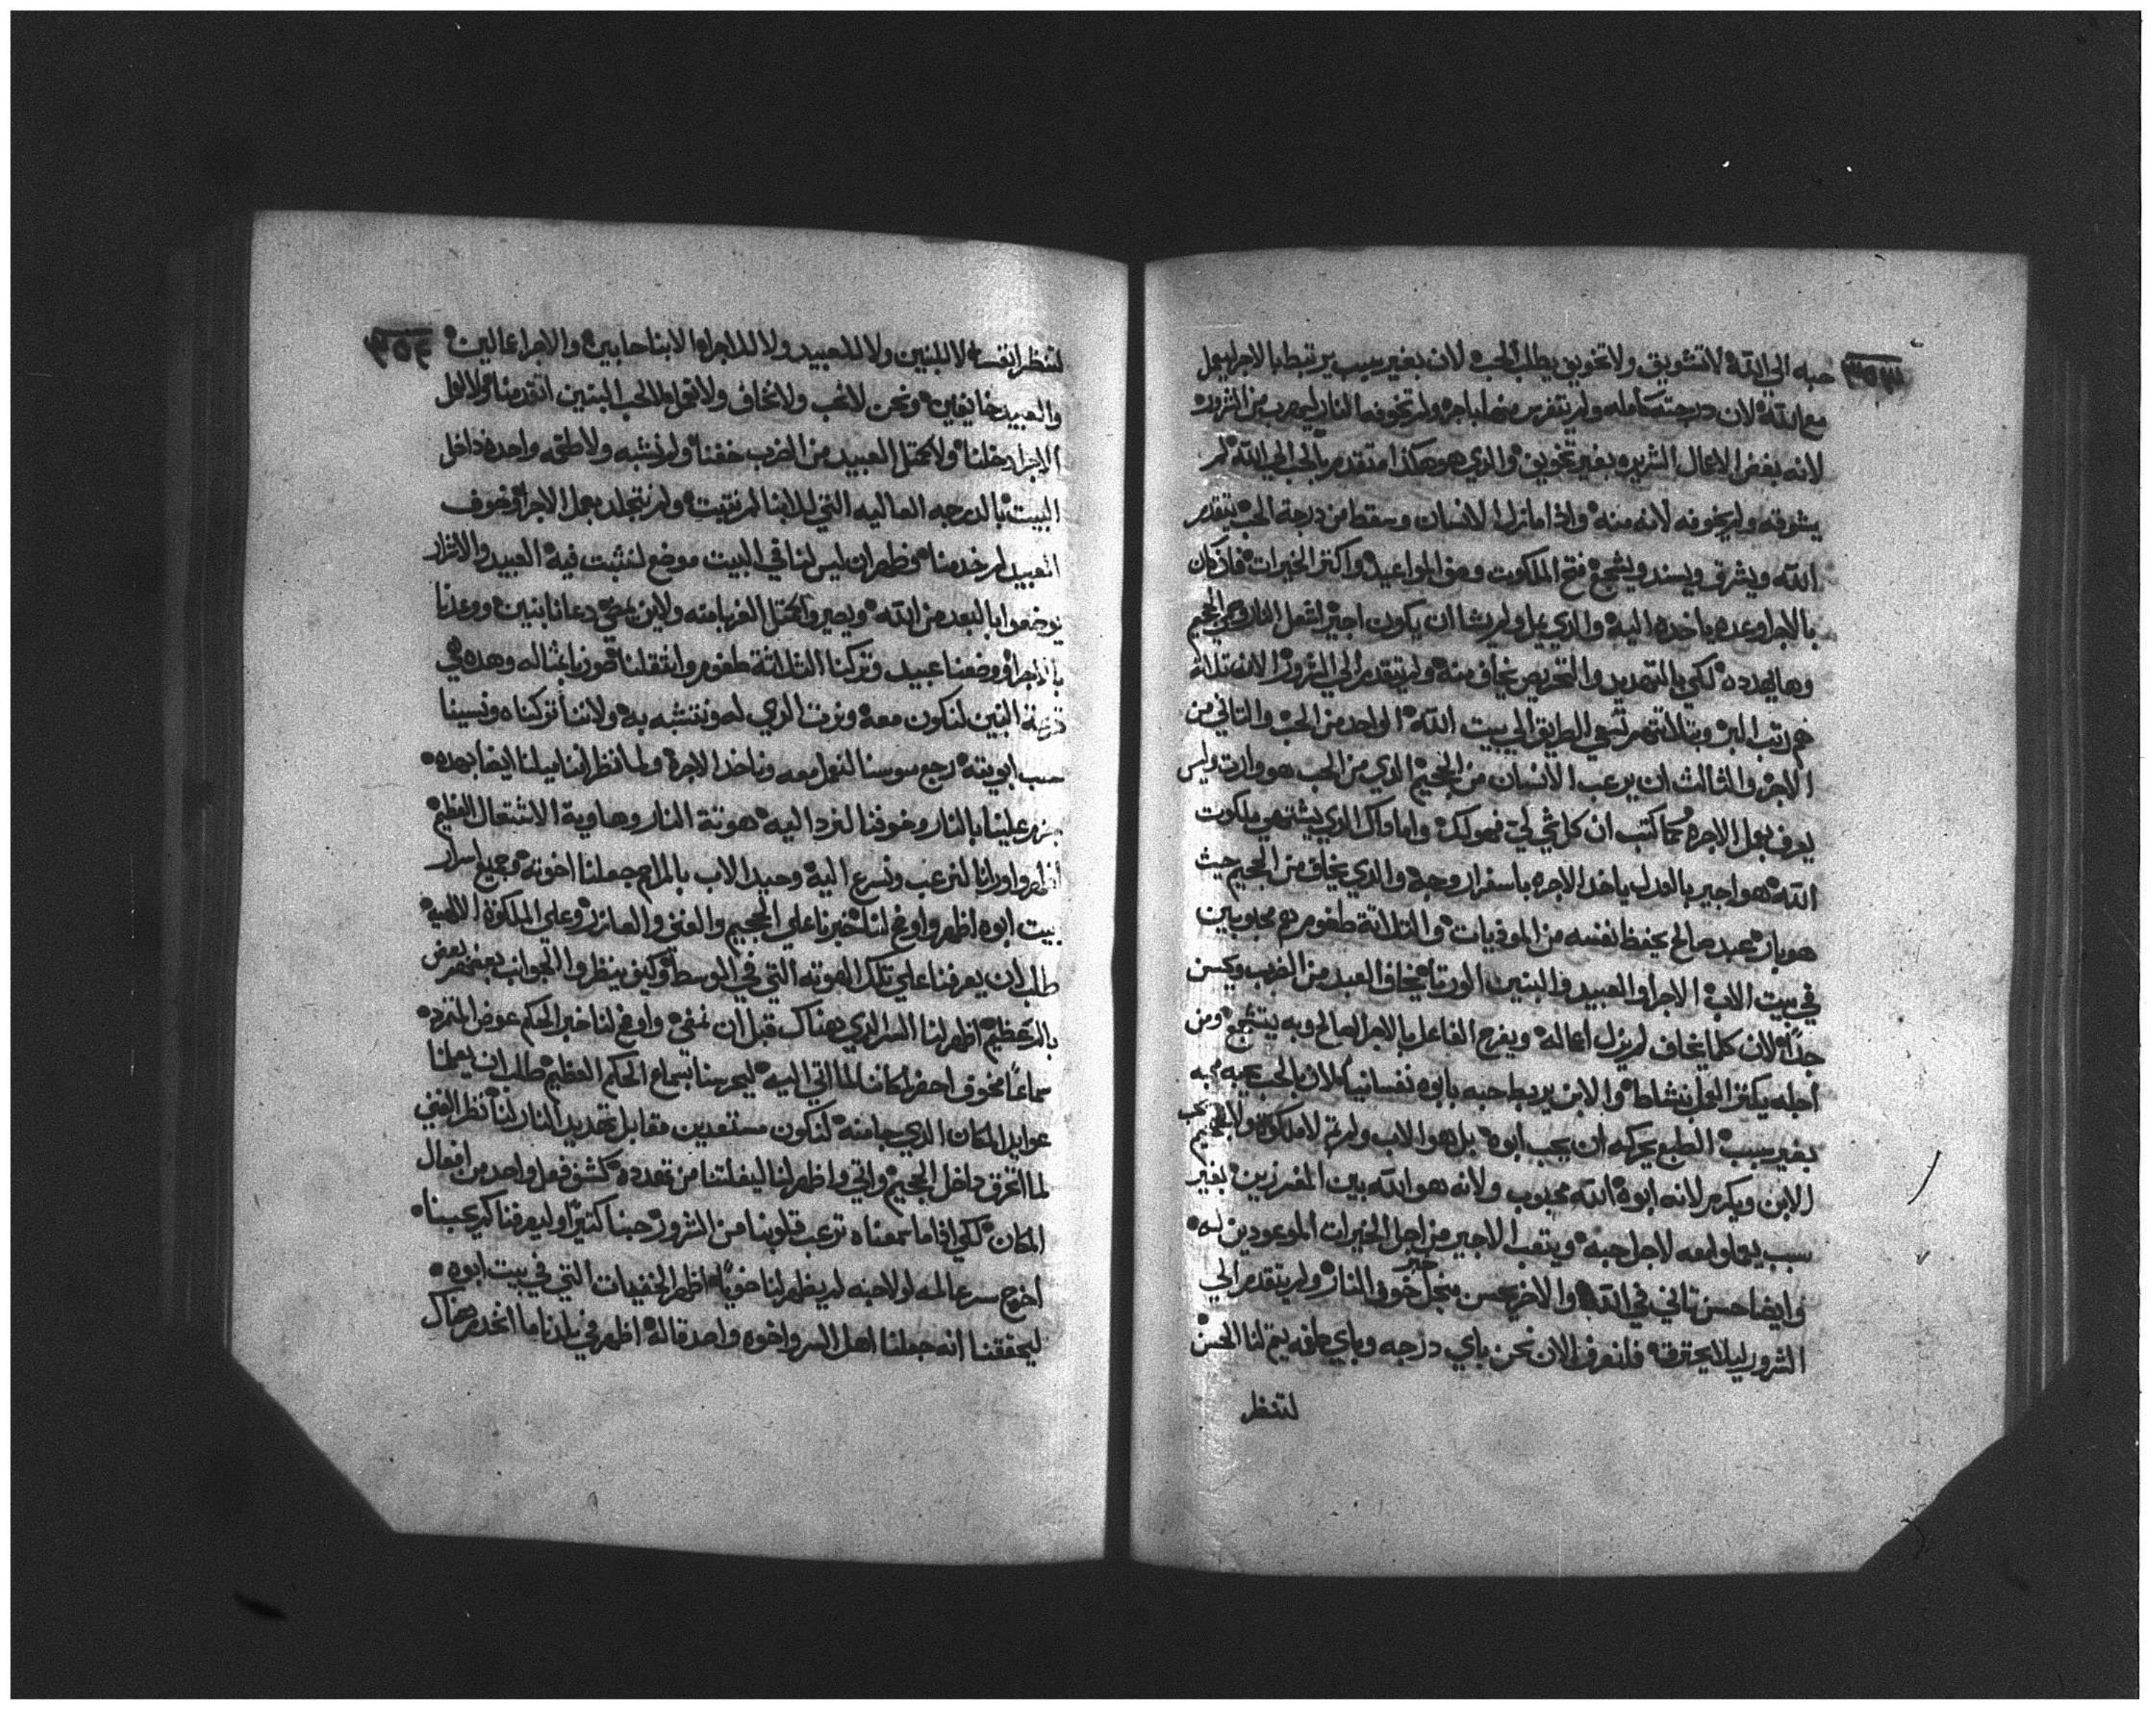 ٣٥٣
حبه الي الله لا تشويق ولا تخويف يطلب الحب لان بغير سبب يرتبط بالاجر ليعمل
مع الله لان درجته كامله ولم يتفرس منها باجره ولم تخوفه النار ليهرب من الشرور
لانه بغض الاعمال الشريره بغير تخويف والذي هو هكذا متقدم بالحب الي الله لم
يشوقه ولم يخوفه لانه منه واذا ما نزل الانسان وسقط من درجة الحب يتقدم
الله ويشرق ويسند ويشجع فتح الملكوت وصف المواعيد واكتر الخيرات فاذ كان
بالاجر اوعده ياخده اليه والذي عمل ولم يشا ان يكون اجير اشعل النار وحمي الجحيم
وها يهدده لكي بالتهديد والتحريص يخاف منه ولم يتقدم الي الشرور الان تلاته
هم رتب البر وبتلاتتهم تسعي الطريق الي بيت الله الواحد من الحب والتاني من
الاجره والثالث ان يرعب الانسان من الجحيم الذي من الحب هو وارت وليس
يعرف بعمل الاجره كما كتب ان كل شي لي فهو لك واما داك الذي يشتهي ملكوت
الله هو اجير بالعدل ياخد الاجره باسفار وجه والذي يخاف من الجحيم حيث
هو بار عبد صالح يحفظ نفسه من الموذيات والتلاتة طغوم هم محبوبين
في بيت الاب الاجرا والعبيد والبنين الورتا يخاف العبد من الضرب ويحسن
جداً لان كلما يخاف لم يزل اعماله ويفرح الفاعل بالاجر الصالح وبه يتشجع ومن
اجله يكتر العمل بنشاط والابن يربط حبه بابوه نفسانياً لان بالحب يحبه محبه
بغير سبب الطبع يحركه ان يحب ابوه بل هو الاب ولم تم لا ملكوته ولا الجحيم يحب
الابن ويكرم لانه ابوه الله محبوب ولانه هو الله بين المفرزين بغير
سبب يعملوا معه لاجل حبه ويتعب الاجير من اجل الخيرات الموعودين له
وايضا حسن تاني في الله والاخر يحسن من اجل خوف النار ولم يتقدم الي
الشرور ليلا يحترق فلنعرف الان نحن باي درجه وباي طقه يتم لنا الحسن
لتنظر
٣٥٤
لتنظر انفسنا لا للبنين ولا للعبيد ولا للاجرا الابنا حابين والاجرا عمالين
والعبيد خايفين ونحن لا نحب ولا نخاف ولا نعمل لا لحب البنين اتقدمنا ولا لعمل
الاجرا دخلنا ولا كمتل العبيد من الضرب خفنا ولم نشبه ولا طقه واحده داخل
البيت بالدرجه العاليه التي للابنا لم نتبت ولم نتجلد بعمل الاجرا وخوف
العبيد لم خدمنا وظهر ان ليس لنا في البيت موضع لنتبت فيه العبيد والاشرار
يوضعوا بالبعد من الله ويصيروا كمتل الغربا منه ولاين نمضي دعانا بنين ووعدنا
بالاجرا ووضعنا عبيد وتركنا التلاتة طغوم وانتقلنا صورنا بمثاله وهده هي
درجة البنين لنكون معه ونرت الذي له ونتشبه به ولاننا تركناه ونسينا
حسب ابويته رجع سوسنا لنعمل معه وناخد الاجرة ولما نظر اننا مبلنا ايضا بهده
جزم علينا بالنار وخوفنا لنرد اليه هوتة النار وهاوية الاشتعال العظيم
اظهر واورانا لنرعب ونسرع اليه وحيد الاب بالمراحم جعلنا اخوته وجميع اسرار
بيت ابوه اظهر واوضح لنا خبرنا علي الجحيم والغني والعازر وعلي الملكوة الالهية
طلب ان يعرفنا علي تلك الهوته التي في الوسط وكيف ينظروا الجوانب بعضهم بعض
بالتعظيم اظهر لنا السر الذي هناك قبل ان نمضي واوضح لنا خبر الحكم عوض المتمرد
سماعاً مخوف احضر لكاننا لما اتي اليه ليحرسنا بسماع الحكم العظيم طلب ان يعلمنا
عوايد المكان الذي جا منه لنكون مستعدين مقابل تهديد النار لنا نظر الغني
لما اتحرق داخل الجحيم واتي واظهر لنا ليفلتنا من تهدده كشف فعل واحد من افعال
المكان لكي اذا ما سمعناه ترعب قلوبنا من الشرور حبنا كتيراً وليعرفنا كم عبنا
اخرج سر عالمه لولا حبه لم يظهر لنا خوياً اظهر الخفيات التي في بيت ابوه
ليحققنا انه جعلنا اهل السر واخوه واحد قاله اظهر في بلدنا ما انحدر هناك